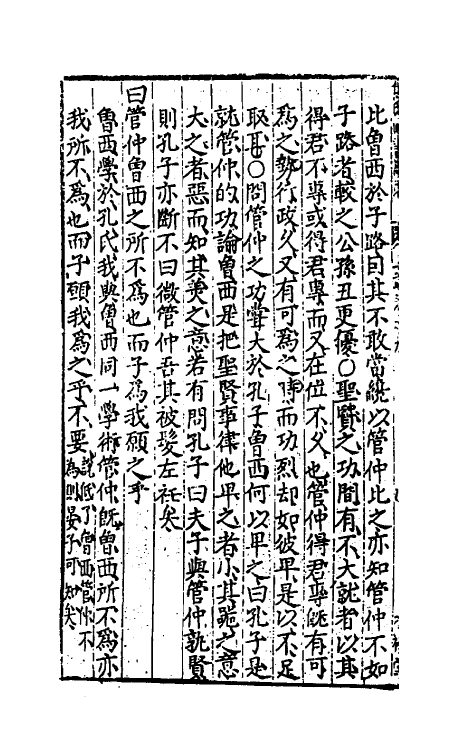 比曾西於子路曰其不敢當纔以管仲比之亦知管仲不如
子路者較之公孫丑更優○聖賢之功間有不大就者以其
得君不專或得君專而又在位不久也管仲得君專既有可
為之勢行政久又有可為之時而功烈却如彼卑是以不足
取耳○問管仲之功嘗大於孔子曾西何以卑之曰孔子是
就管仲的功論曾西是把聖賢事律他卑之者小其器之意
大之者惡而知其美之意若有問孔子曰夫子與管仲孰賢
則孔子亦斷不曰微管仲吾其被髮左衽矣
曰管仲曾西之所不為也而子為我願之乎
曾西學於孔氏我與曾西同一學術管仲既曾西所不為亦
我所不為也而子願我為之乎不要說低了曾西管仲不
為則晏子可知矣